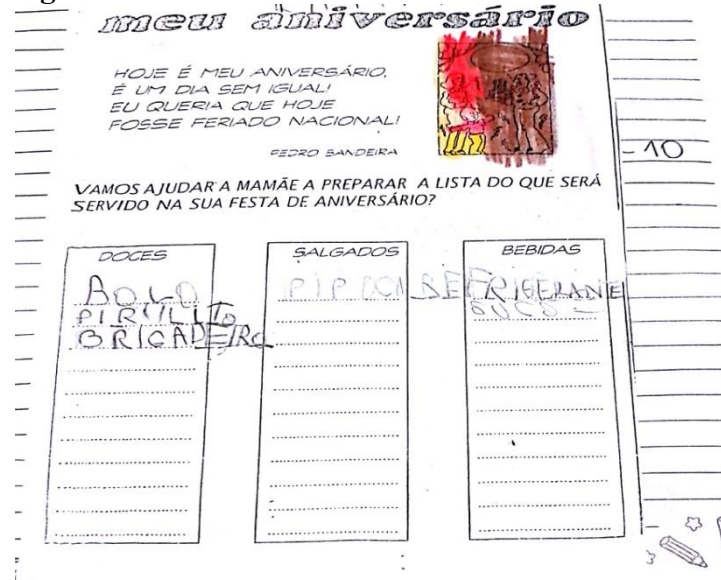 meu aniversário
HOJE É MEU ANIVERSÁRIO,
É UM DIA SEM IGUAL!
EU QUERIA QUE HOJE
FOSSE FERIADO NACIONAL!
PEDRO BANDEIRA
10
VAMOS AJUDAR A MAMÃE A PREPARAR A LISTA DO QUE SERÁ
SERVIDO NA SUA FESTA DE ANIVERSÁRIO?
DOCES
BOLO
PIRULITO
BRICADEIRO
SALGADOS
PIPOCA
BEBIDAS
REFRIGERANE
SUCO